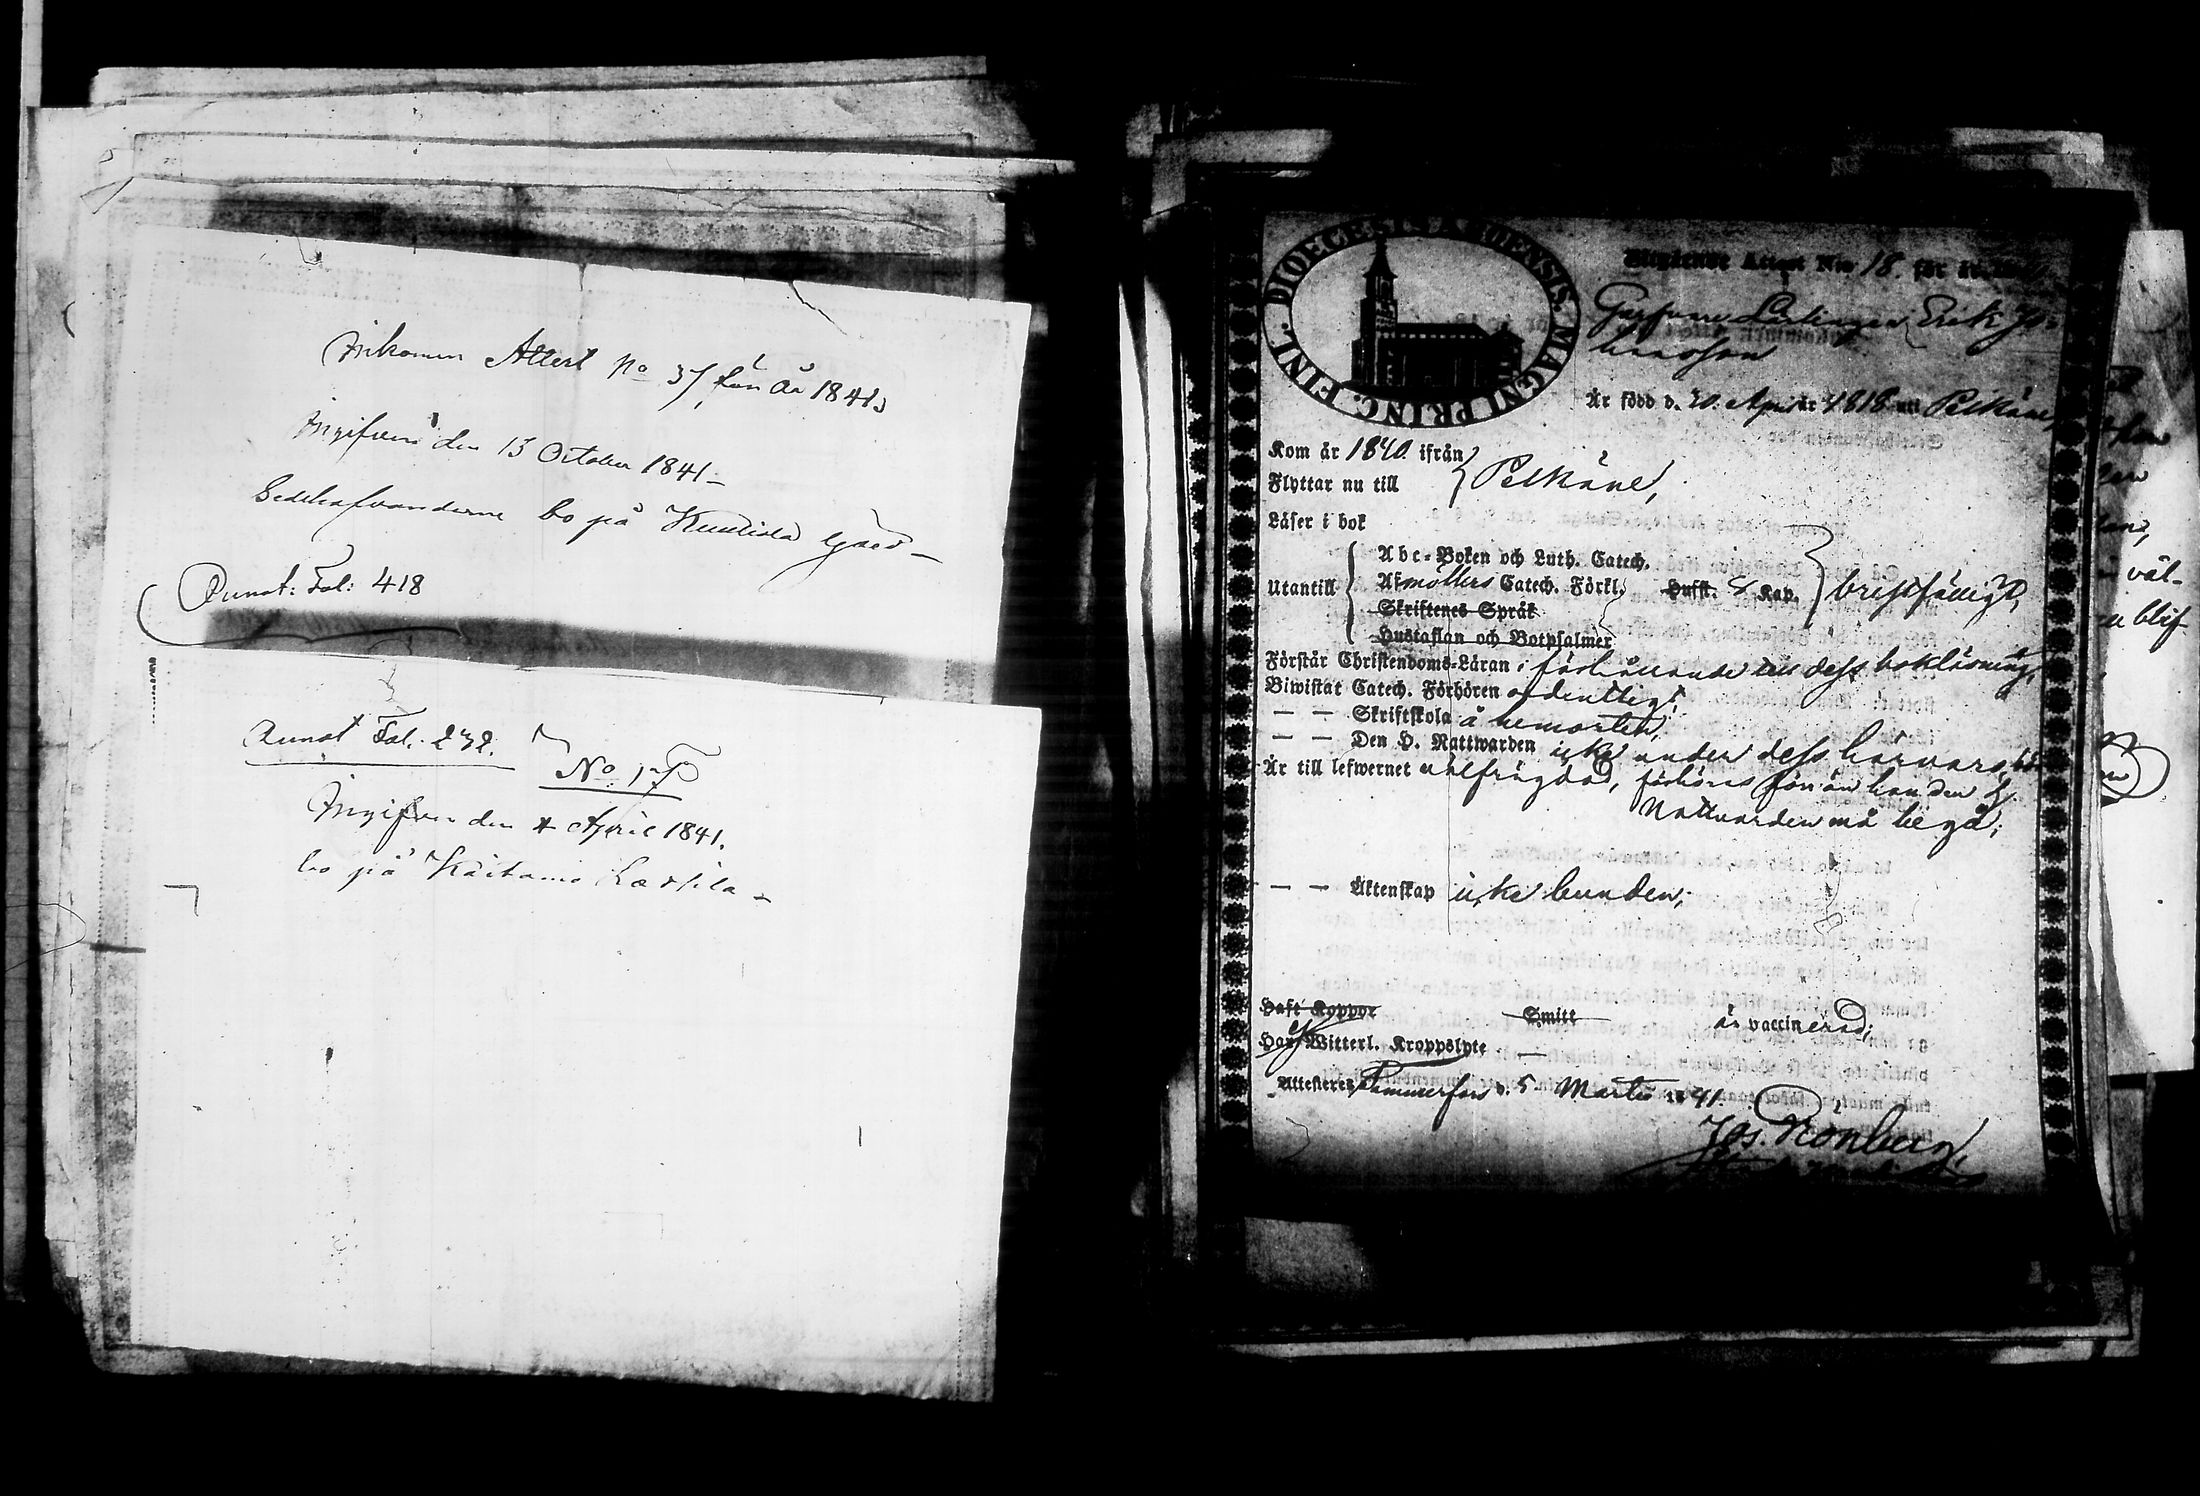 Inkommen Attest No 37 för år 1841.
Ingifven den 13 October 1841 –
bo på gård –
Annot: Fol: 418
Annot Fol: 232.
No 17
Ingifven den 4 April 1841.
bo på Laurila –
DIOECESIS ABOENSIS. MAGNI PRINC. FINL.
Utgående Attest N:o 18 för år
Garfvare Lärlingen Erik Jo-
hansson
Är född d. 20 April år 1818 uti Pelkäne,
Kom år 1840. ifrån
Flyttar nu till } Pelkäne,
Läser i bok
Utantill
Abc-Boken och Luth. Catech.
Af möllers Catech. Förkl. Hufst. 8 Kap. } bristfälligt,
Skriftenes Språk
Hustaflan och Botpsalmer
Förstår Christendoms-Läran i förhållande till dess bokläsning,
Biwistat Catech. Förhören ordentligt,
— — Skriftskola å hemorten,
— — Den H. Nattwarden icke under dess härvaro,
Är till lefwernet välfrägdad, förhöres förrän han den H.
Nattvarden må begå;
— — Äktenskap icke bunden;
Haft Koppor Smitt är vaccinerad;
Har Witterl. Kroppslyte —
Attesteres Tammerfors d. 5 Martii 1841.
Jos. Grönberg,
väl-
blif-